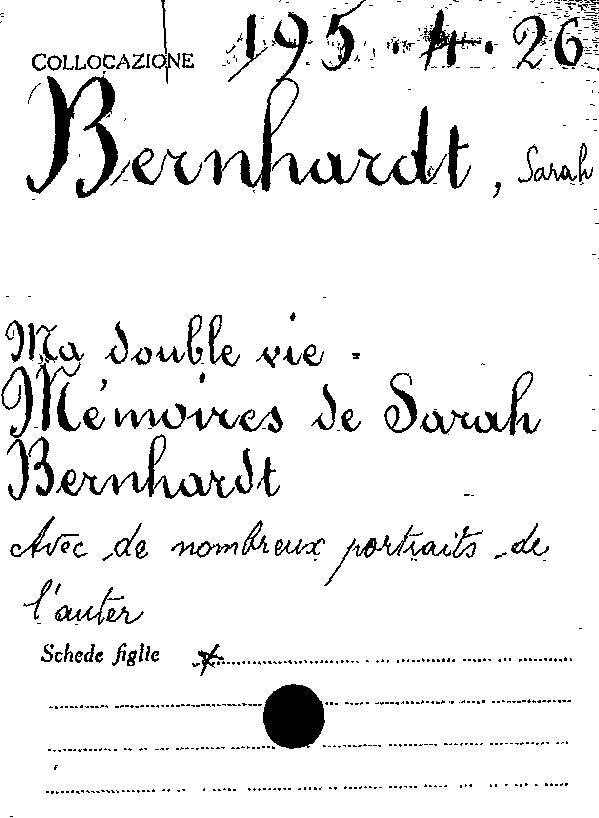 COLLOCAZIONE 195.4.26
Bernhardt, Sarah
Ma double vie =
Mémoires de Sarah
Bernhardt
Avec de nombreux portraits de
l'auter
Schede figlie